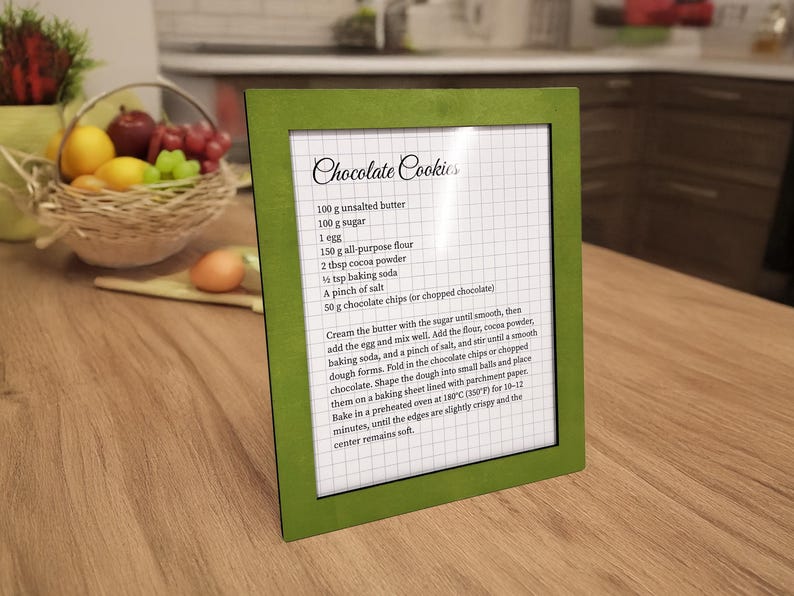 Chocolate Cookies
100 g unsalted butter
100 g sugar
1 egg
150 g all-purpose flour
2 tbsp cocoa powder
½ tsp baking soda
A pinch of salt
50 g chocolate chips (or chopped chocolate)
Cream the butter with the sugar until smooth, then
add the egg and mix well. Add the flour, cocoa powder,
baking soda, and a pinch of salt, and stir until a smooth
dough forms. Fold in the chocolate chips or chopped
chocolate. Shape the dough into small balls and place
them on a baking sheet lined with parchment paper.
Bake in a preheated oven at 180°C (350°F) for 10–12
minutes, until the edges are slightly crispy and the
center remains soft.